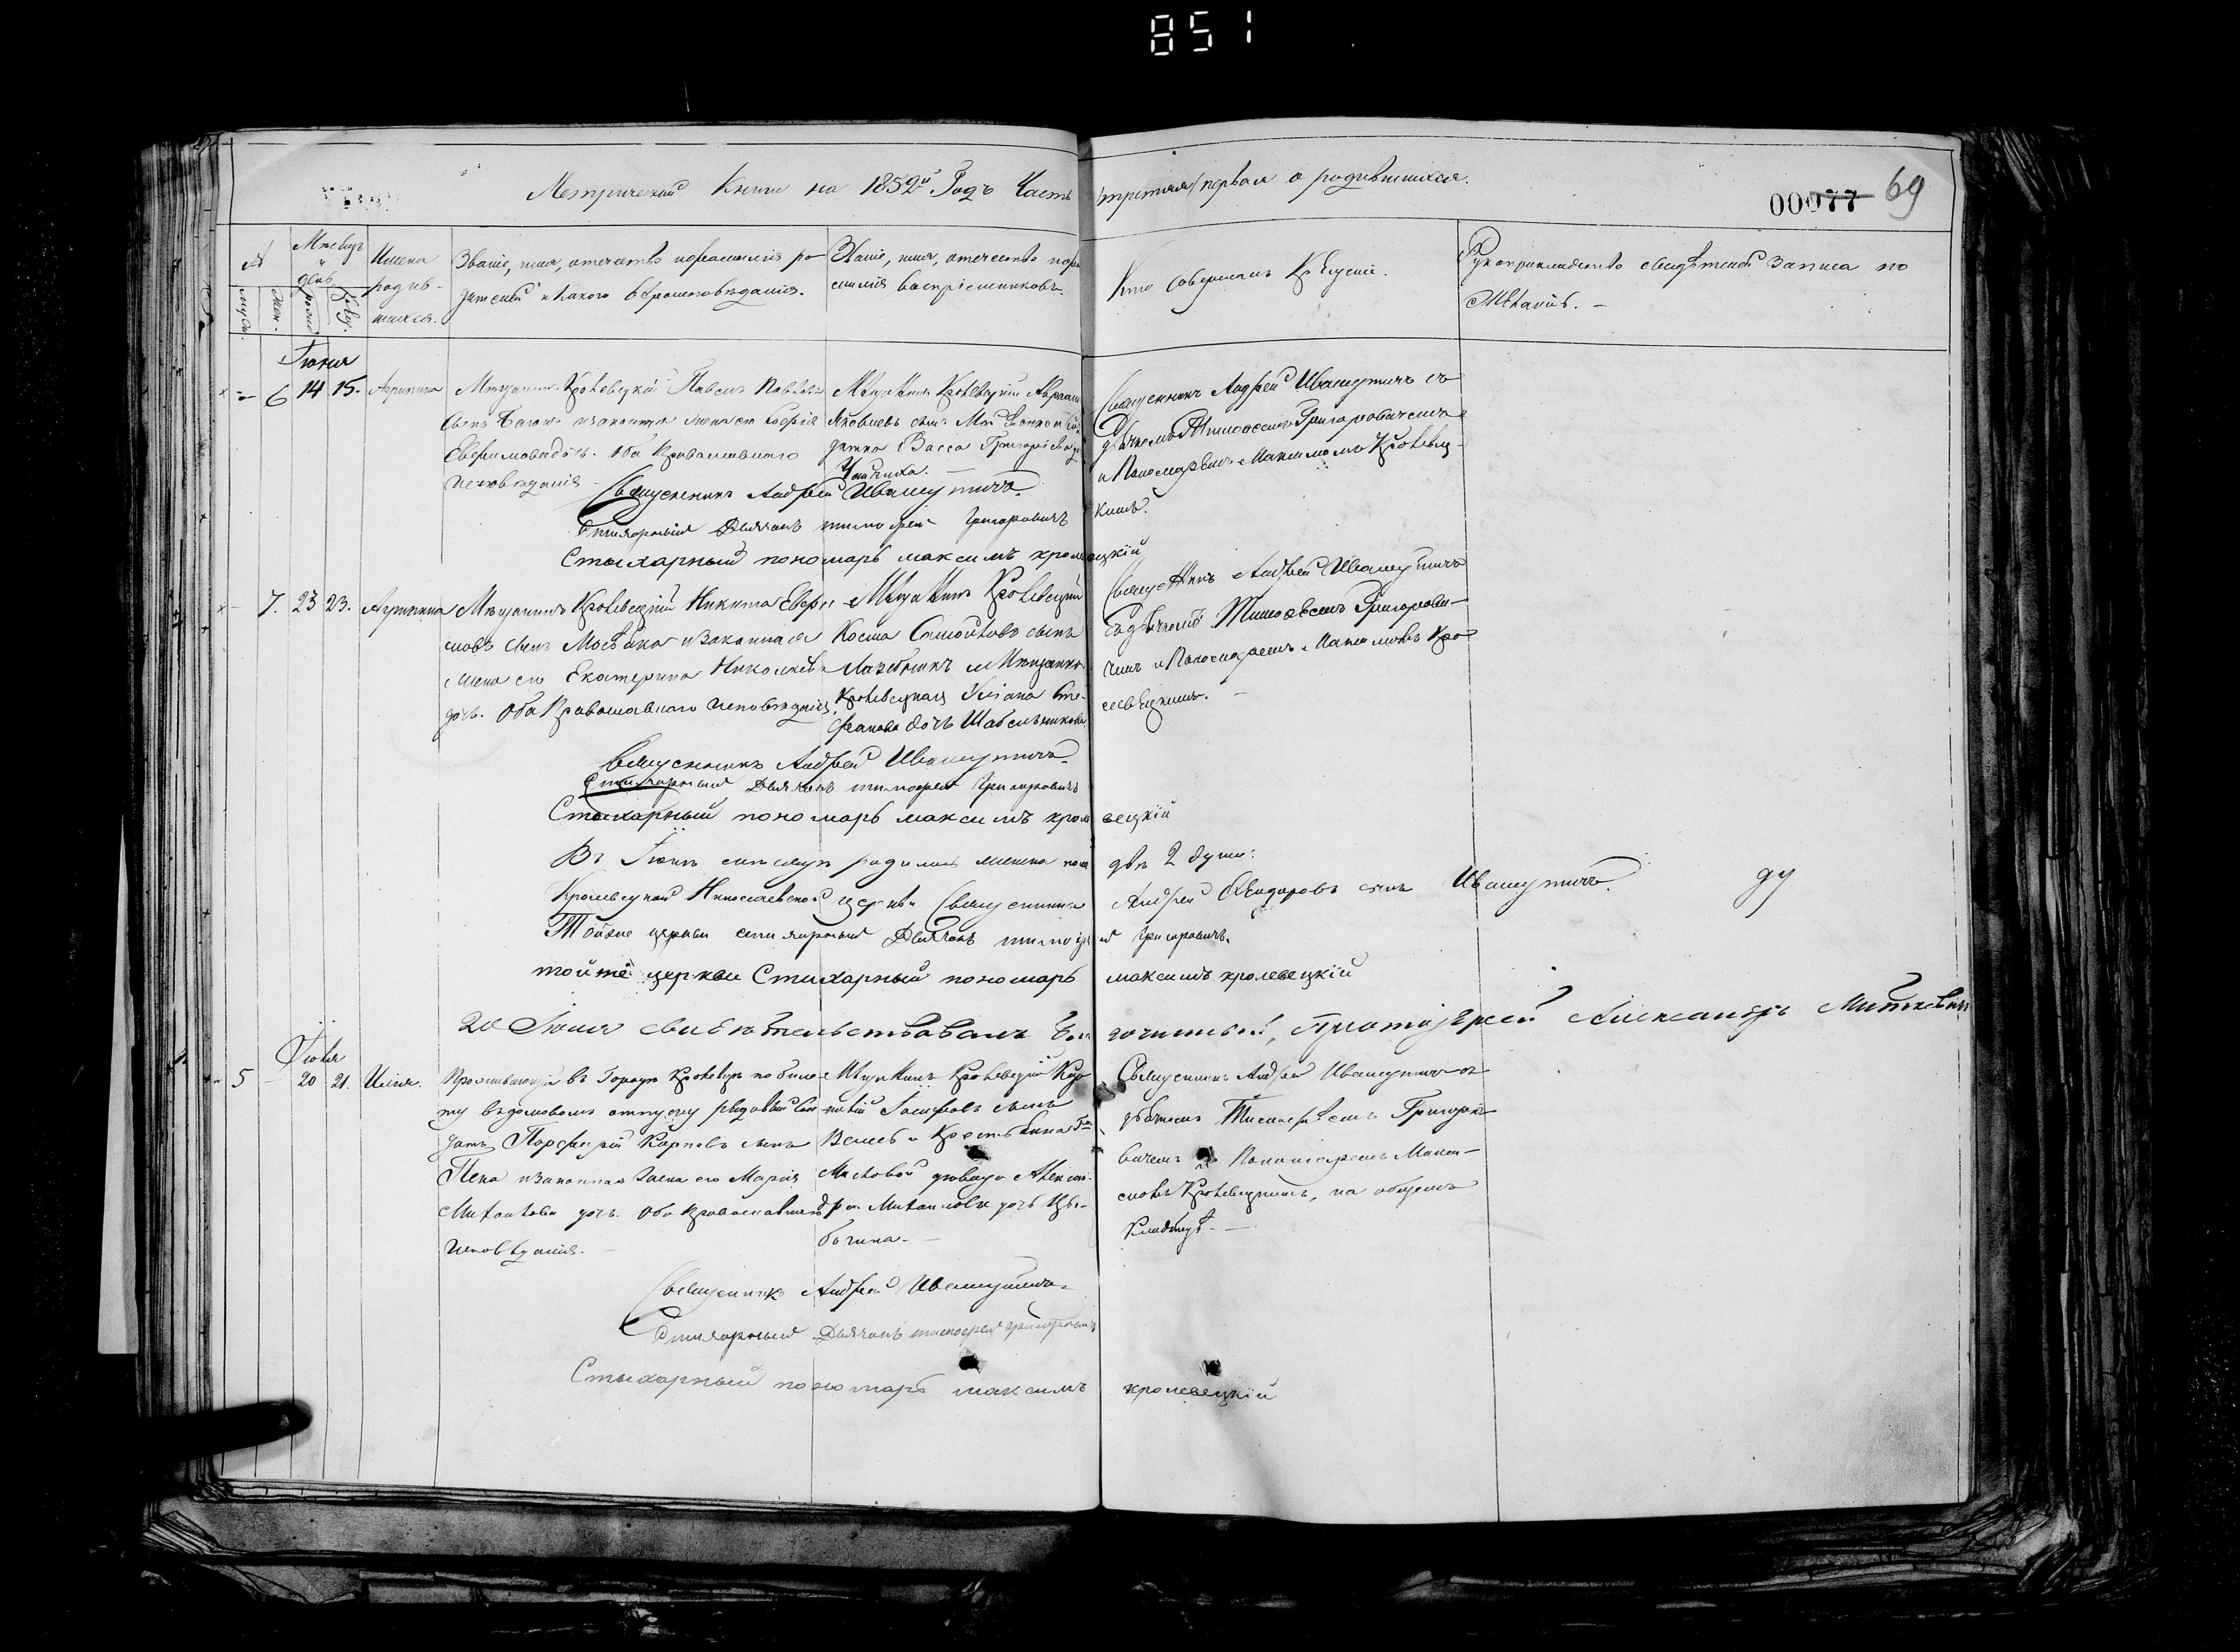 851
Метрической Книги на 1852й Годъ Часть (третяя) первая о родившихся.
00077 69
№
Мѣсяцъ и день
Имена родив-шихся.
Званіе, имя, отчество и фамилія ро-
дителей и какого вѣроисповѣданія.
Званіе, имя, отчество и фа-
милія воспріемниковъ.
Кто совершалъ Крещеніе.
Рукоприкладство свидѣтелей записи по
желанію.
Муж. Жен. рожд. Крещ.
Іюня
6 14 15. Агрипина
Мѣщанинъ Кролевецкій Павелъ
сынъ и законная жена его Софія
Евфимова дочь. Оба Православнаго
исповѣданія
Мѣщанинъ Кролевецкій Авраам
Яковлевъ сынъ
Васса Григоріева
Священникъ Андрей Ивашутичъ съ
дьячкомъ Тимофеемъ Григоровичемъ
и Пономаремъ Максимомъ Кролевец-
кимъ.
Священникъ Андрей Ивашутичъ.
Стихарный Дьячокъ тимофей Григоровичъ
Стыхарный пономарь максимъ кролевецкій
7. 23 23. Агрипина
Мѣщанинъ Кролевецкій Никита Евфи-
мовъ сынъ и законная
жена его Екатерина Николаева
дочь. Оба Православнаго исповѣданія.
Мѣщанинъ Кролевецкій
Косма Самойловъ сынъ
и Мѣщанка
Кролевецкая Уліана Сте-
фанова дочь Шабельникова
Священникъ Андрей Ивашутичъ
съ дьячкомъ Тимофеемъ Григорови-
чемъ и Пономаремъ Максимомъ Кро-
левецкимъ.
Священникъ Андрей Ивашутичъ.
Стихарный Дьячокъ тимофей Григоровичъ
Стыхарный пономарь максимъ кролевецкій
Въ Іюнѣ мѣсяцѣ родилось женска пола двѣ 2 души:
Кролевецкой Николаевской церкви Священникъ Андрей Феодоровъ сынъ Ивашутичъ.
Тойже церкви стихарный Дьячокъ тимофей Григоровичъ.
тойже церкви Стихарный пономарь максимъ кролевецкій
20 Іюля свидѣтельствовалъ благочинный, Протоіерей Александръ Миткевичъ
Іюля
5 20 21. Илія.
Проживающій въ Городѣ Кролевцѣ по биле-
ту отпуску рядовый Сол-
датъ Порфирій Карповъ сынъ
Пена и законная жена его Марія
Михайлова дочь. Оба Православнаго
исповѣданія.
Мѣщанинъ Кролевецкій
Іосифовъ сынъ
и Крестьянка
Александра Михайлова дочь
Священникъ Андрей Ивашутичъ съ
дьячкомъ Тимофеемъ Григоро-
вичемъ и Пономаремъ Макси-
момъ Кролевецкимъ, на общемъ
Кладбищѣ.
Священникъ Андрей Ивашутичъ.
Стихарный Дьячокъ тимофей Григоровичъ
Стыхарный пономарь максимъ кролевецкій